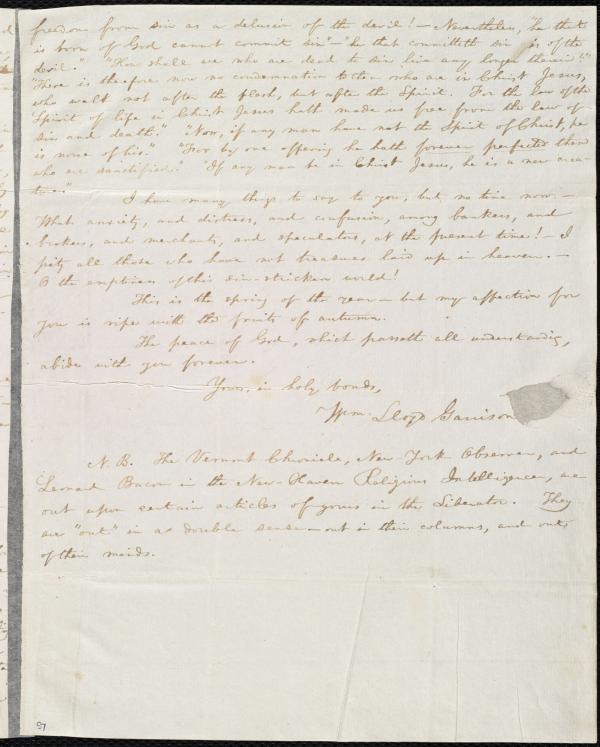 freedom from sin as a delusion of the devil! — Nevertheless, "he that
is born of God cannot commit sin" — "he that committeth sin is of the
devil." "How shall we who are dead to sin live any longer therein?"
"There is therefore now no condemnation to them who are in Christ Jesus,
who walk not after the flesh, but after the Spirit. For the law of the
Spirit of life in Christ Jesus hath made us free from the law of
sin and death." "Now, if any man have not the Spirit of Christ, he
is none of his." "For by one offering he hath forever perfected them
who are sanctified." "If any man be in Christ Jesus, he is a new crea-
ture."
I have many things to say to you, but no time now. —
What anxiety, and distress, and confusion, among bankers, and
brokers, and merchants, and speculators, at the present time! — I
pity all those who have not treasures laid up in heaven. —
O the emptiness of this sin-stricken world!
This is the spring of the year — but my affection for
you is ripe with the fruits of autumn.
The peace of God, which passeth all understanding,
abide with you forever.
Yours, in holy bonds,
Wm. Lloyd Garrison
N. B. The Vermont Chronicle, New-York Observer, and
Leonard Bacon in the New-Haven Religious Intelligencer, are
out upon certain articles of yours in the Liberator. They
are "out" in a double sense — out in their columns, and out
of their minds.